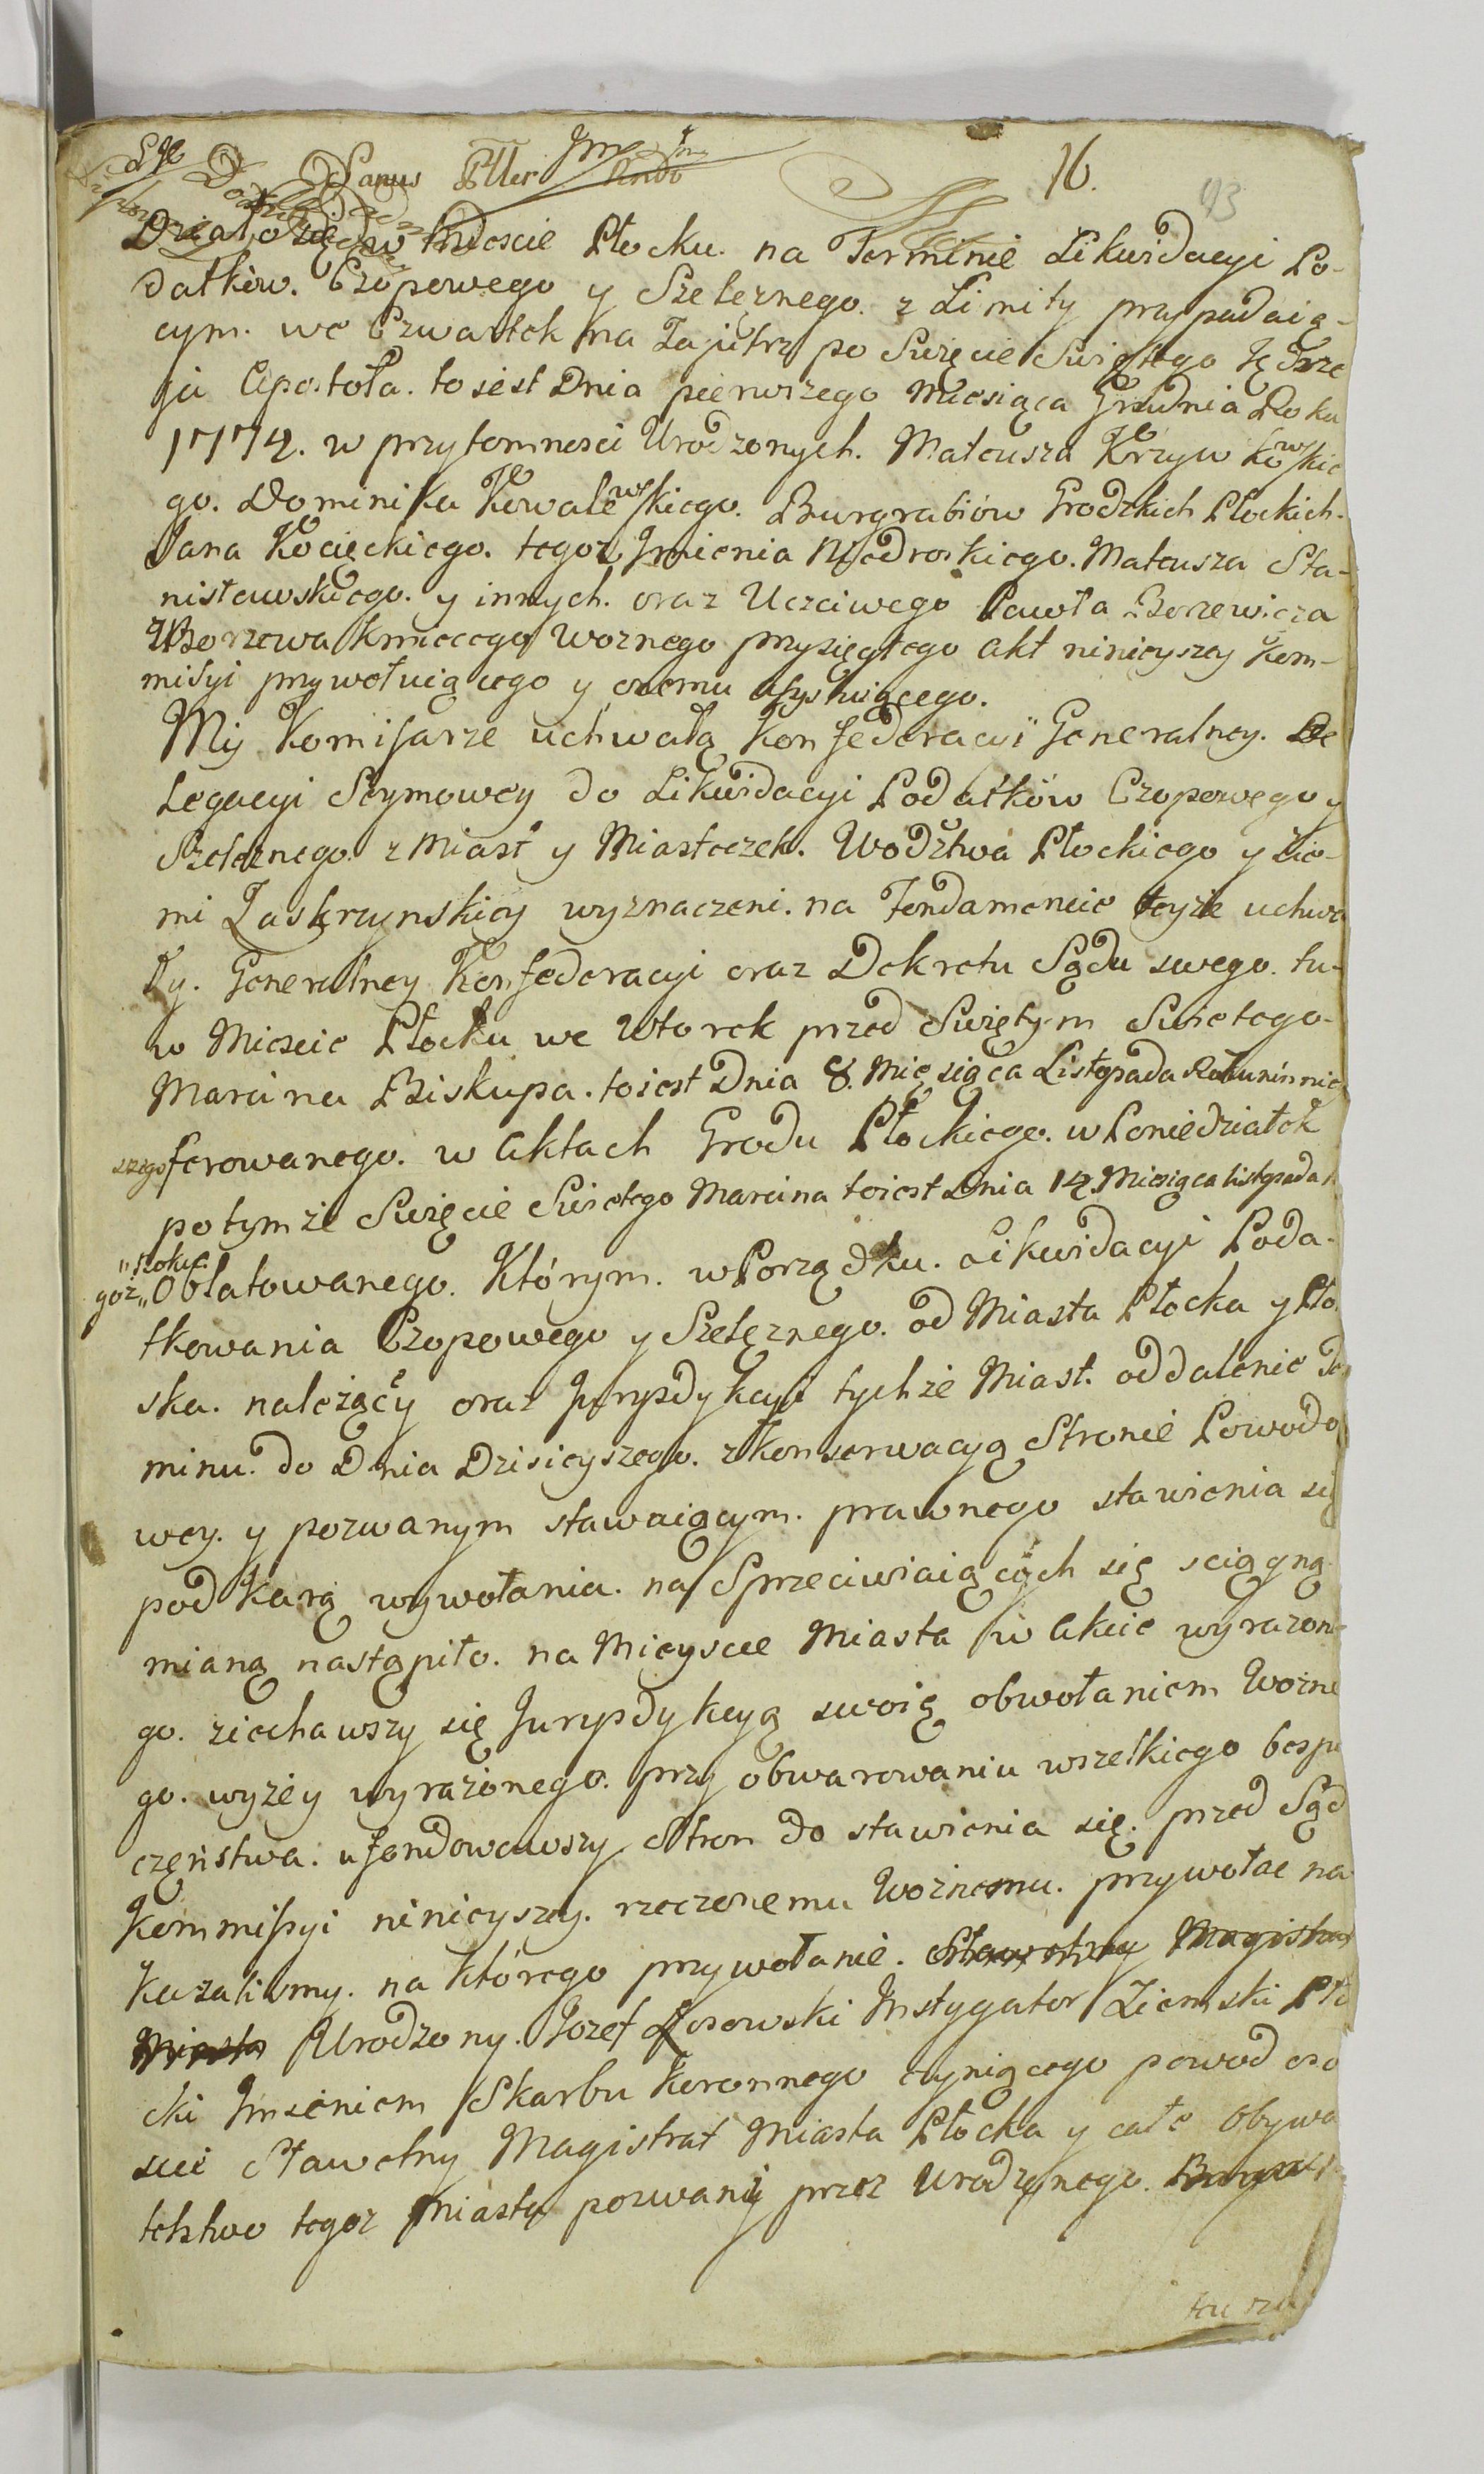 16.
93
Działo się w Mieście Płocku. na Terminie Likwidacyi Po-
datków. Czopowego y Szelęznego. z Limity przypadaią-
cym. we Czwartek na Zajutrz po Swięcie Swiętego Ję Drze
ja Apostoła. to iest Dnia pierwszego Miesiąca Grudnia Roku
1774. w przytomnosci Urodzonych. Mateusza Krzywkowskie
go. Dominika Kowalewskiego. Burgrabiów Grodzkich Płockich.
Jana Kocięckiego. tegoz Jmienia Modroskiego. Mateusza Sta-
nisławskiego. y innych. oraz Uczciwego Pawła Borzewicza
z Borzewa kmiecego Woznego przysięgłego akt ninieyszey Kom-
misyi przywołuiącego y onemu assystuiącego.
My Komisarze uchwałą Konfederacyi Generalney. De
legacyi Seymowey do Likwidacyi Podatków Czopowego y
Szelęznego. z Miast y Miasteczek. Wodztwa Płockiego y Zie-
mi Zaskrzynskiey wyznaczeni. na Fondamencie teyże uchwa
ły. Generalney Konfederacyi oraz Dekretu Sądu swego. tu-
w Miescie Płocku we Wtorek przed Swiętym Swietego-
Marcina Biskupa. toiest Dnia 8. Mięsiąca Listopada Roku ninniey
szego ferowanego. w Aktach Grodu Płockiego. w Poniedziałek
potym że Swięcie Swietego Marcina toiest Dnia 14. Miesiąca Listopada
„roku
goż„ Oblatowanego. Którym. w Porządku. Likwidacyi Poda-
tkowania Czopowego y Szelęznego. od Miasta Płocka y Pło
ska. należący oraz Jurysdykcyi tychże Miast. oddalenie
minu. do Dnia Dzisieyszego. z konserwacyą Stronie Powodo
wey. y pozwanym stawaiącym. prawnego stawienia się
pod karą wywołania. na Sprzeciwiaiących się sciągną-
mianą nastąpiło. na Mieysce Miasta w Akcie wyrazone
go. ziechawszy się Jurysdykcyą swoią obwołaniem Wozne
go. wyżey wyrażonego. przy obwarowaniu wszelkiego bespie
częństwa. ufondowawszy Stron do stawienia się. przed Sąd
Kommissyi ninieyszey. rzeczonemu Woźnemu. przywołac na
kazaliśmy. na którego przywołanie. Sławetny Magistrat
Miasta Urodzony. Jozef Rosowski Jnstygator Ziemski Pło
cki Jmieniem Skarbu Koronnego czyniącego powod oso
scie Sławetny Magistrat Miasta Płocka y całe Obywa
telstwo tegoz Miasta pozwani przez Urodzonego.